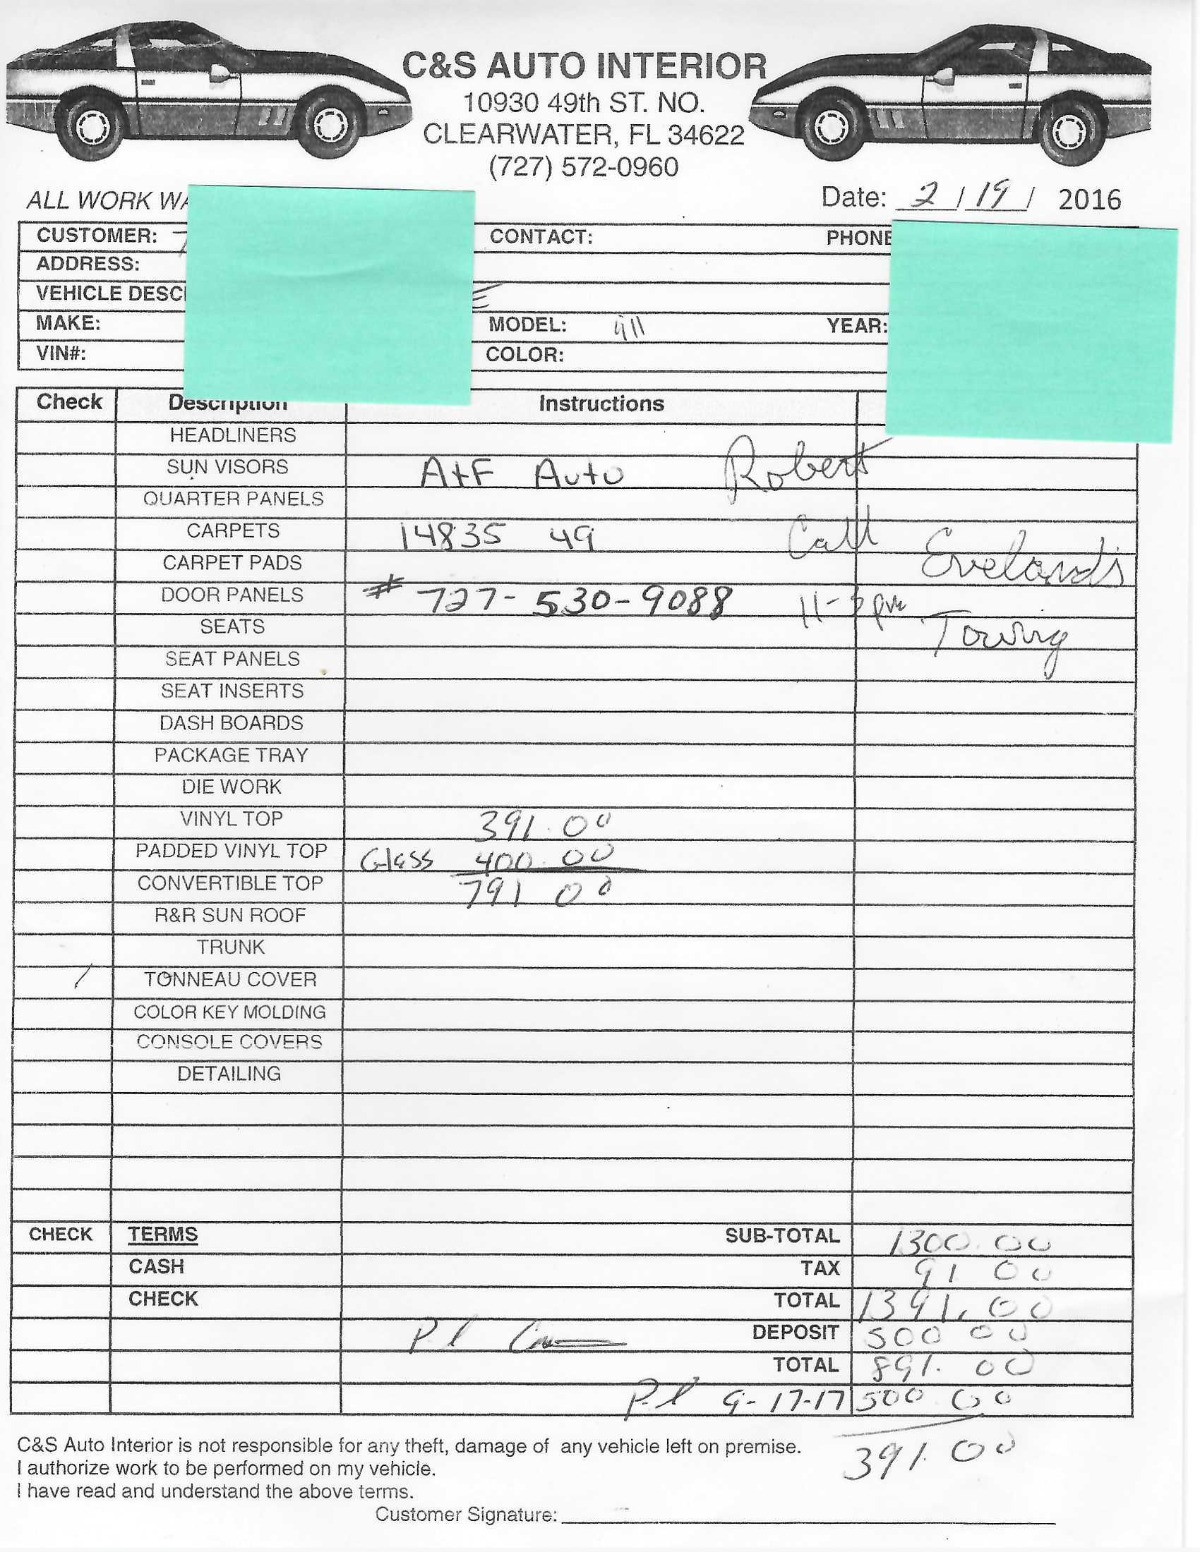 C&S AUTO INTERIOR
10930 49th ST. NO.
CLEARWATER, FL 34622
(727) 572-0960
ALL WORK WA
Date: 2 / 19 / 2016
CUSTOMER: CONTACT: PHONE
ADDRESS:
VEHICLE DESCI E
MAKE: MODEL: 911 YEAR:
VIN#: COLOR:
Check Description Instructions
HEADLINERS
SUN VISORS A+F Auto Robert
QUARTER PANELS
CARPETS 14835 49 Call Eveland's
CARPET PADS
DOOR PANELS # 727-530-9088 11- pm Towing
SEATS
SEAT PANELS
SEAT INSERTS
DASH BOARDS
PACKAGE TRAY
DIE WORK
VINYL TOP 391.00
PADDED VINYL TOP Glass 400.00
CONVERTIBLE TOP 791 00
R&R SUN ROOF
TRUNK
/ TONNEAU COVER
COLOR KEY MOLDING
CONSOLE COVERS
DETAILING
CHECK TERMS SUB-TOTAL 1300.00
CASH TAX 91 00
CHECK TOTAL 1391.00
Pd DEPOSIT 500 00
TOTAL 891.00
Pd 9-17-17 500 00
391.00
C&S Auto Interior is not responsible for any theft, damage of any vehicle left on premise.
I authorize work to be performed on my vehicle.
I have read and understand the above terms.
Customer Signature: